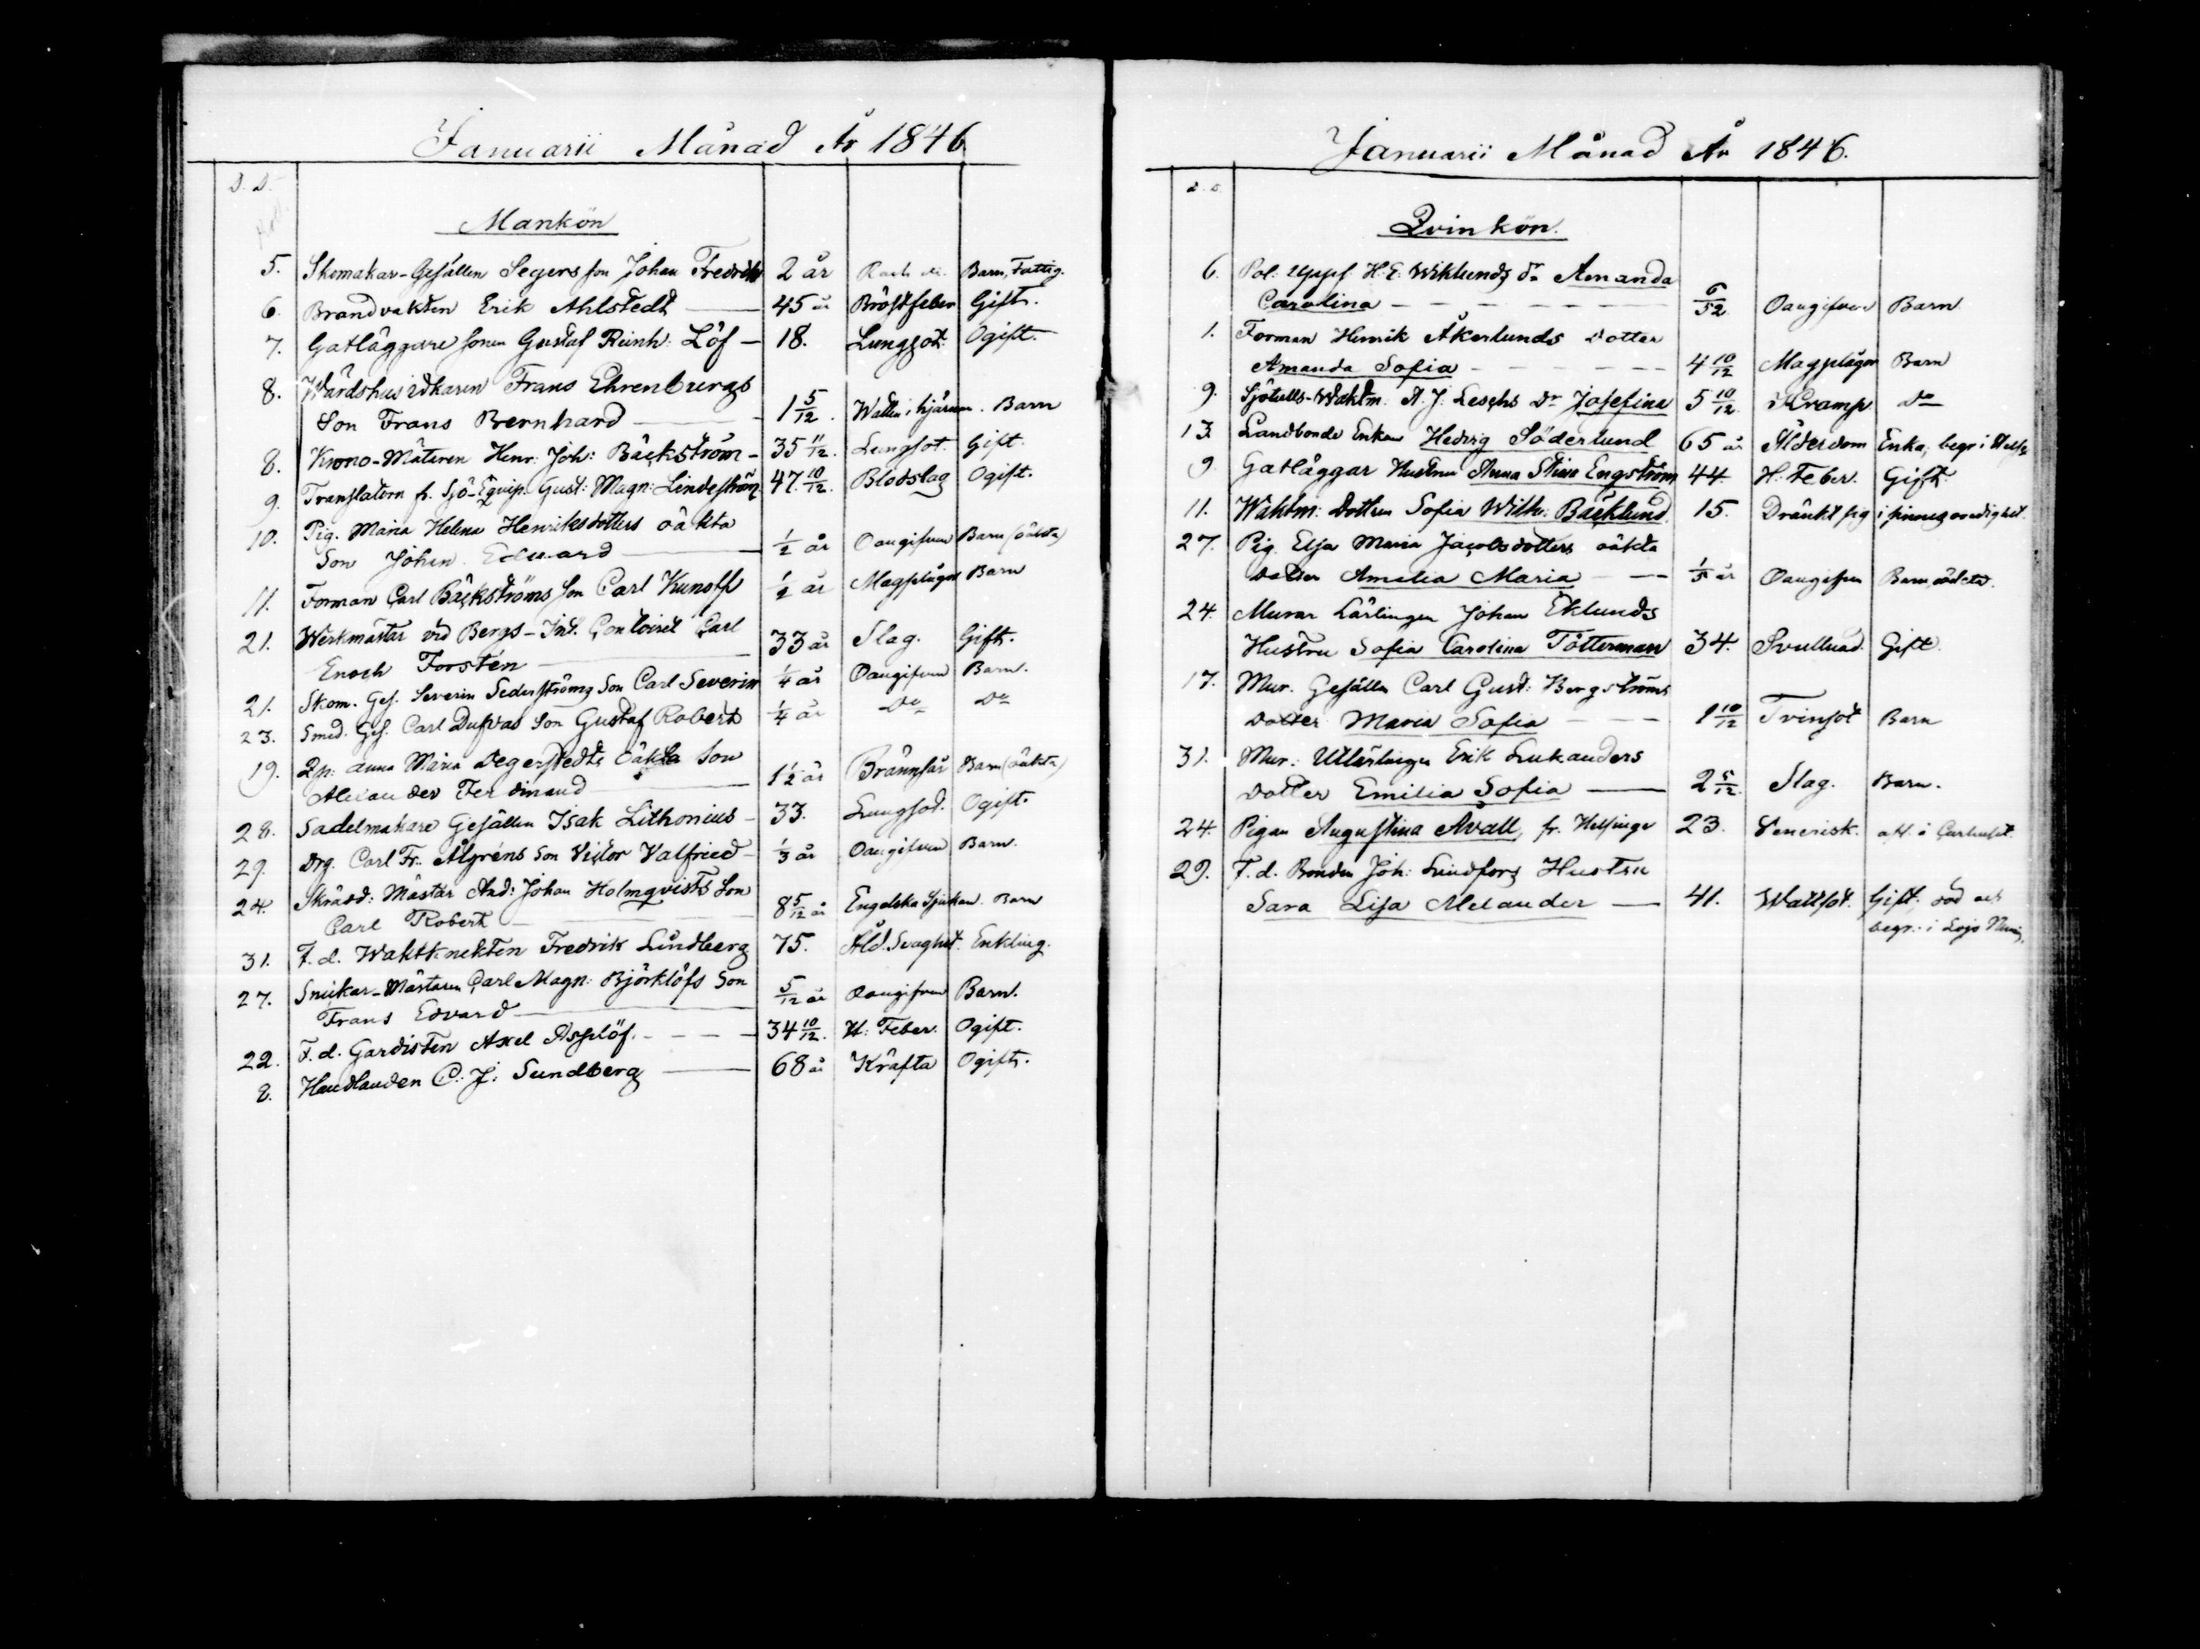 Januarii Månad År 1846
D. D.
Mankön
5. Skomakar-Gesällen Segers son Johan Fredrik 2 år Barn, Fattig.
6. Brandvakten Erik Ahlstedt 45 år Bröstfeber Gift.
7. Gatläggare sonen Gustaf Reinh: Löf 18. Lungsot. Ogift.
8. Wärdshusidkaren Frans Ehrenbergs
Son Frans Bernhard 1 5/12. Watten i hjärnan. Barn
8. Krono-Mätaren Henr: Joh: Bäckström 35 11/12. Lungsot. Gift.
9. Translatorn fr. Sjö-Equip. Gust: Magn: Lindeström 47. 10/12. Blodslag Ogift.
10. Pig. Maria Helena Henriksdotters oäkta
Son Johan Edward 1/2 år Oangifven Barn (oäkta)
11. Forman Carl Bäckströms son Carl 1/2 år Magplågor Barn
21. Werkmästar vid Bergs-Int. Contoiret Carl
Enoch Forstén 33 år Slag. Gift.
21. Skom. Ges. Severin Sederströms Son Carl Severin 1/4 år Oangifven Barn.
23. Smed. Ges. Carl Dufvas Son Gustaf Robert 1/4 år Do Do
19. Qp: Anna Maria Degerstedts Oäkta Son
Alexander Ferdinand 1 1/2 år Brännsår Barn (oäkta)
28. Sadelmakare Gesällen Isak Lithonius 33. Lungsot. Ogift.
29. Drg. Carl Fr. Algréns Son Victor Valfried 1/3 år Oangifven Barn.
24. Skrädd: Mästar And: Johan Holmqvists Son
Carl Robert 8 5/12 år Engelska Sjukan. Barn
31. F. d. Waktknekten Fredrik Lindberg 75. Åld. Svaghet. Enkling.
27. Snickar-Mästaren Carl Magn: Björklöfs Son
Frans Edvard 5/12 år Oangifven Barn.
22. F. d. Gardisten Axel Asplöf. 34 10/12. H: Feber. Ogift.
8. Handlanden C: J: Sundberg 68 år Kräfta Ogift.
Januarii Månad År 1846.
D. D.
Qvinkön.
6. Pol: Upps H: E: Wiklunds Dr Amanda
Carolina 6/52 Oangifven Barn
1. Forman Henrik Åkerlunds dotter
Amanda Sofia 4 10/12 Magplågor Barn
9. Sjötulls-Waktm. A. J. Leschs Dr Josefina 5 10/12. Kramp Do
13. Landbonde Enkan Hedvig Söderlund 65 år Ålderdom Enka, begr. i
9. Gatläggar Hustrun Anna Stina Engström 44. H: Feber. Gift.
11. Waktm: Dottren Sofia Wilh: Bäcklund. 15. Dränkt sig i sinnesoredighet.
27. Pig. Elsa Maria Jacobsdotters oäkta
dotter Amalia Maria 1/5 år Oangifven Barn, oäkta.
24. Murar Lärlingen Johan Eklunds
Hustru Sofia Carolina Tötterman 34. Svullnad. Gift.
17. Mur. Gesällen Carl Gust: Bergströms
Dotter Maria Sofia 1 10/12 Tvinsot Barn
31. Mur: Utlärlingen Erik Lukanders
Dotter Emilia Sofia 2 5/12. Slag. Barn.
24. Pigan Augustina Avall, fr. Helsinge 23. Venerisk. afl. i Curhuset.
29. F. d. Bonden Joh: Lindfors Hustru
Sara Lisa Melander 41. Wattsot. Gift, död och
begr: i Lojo